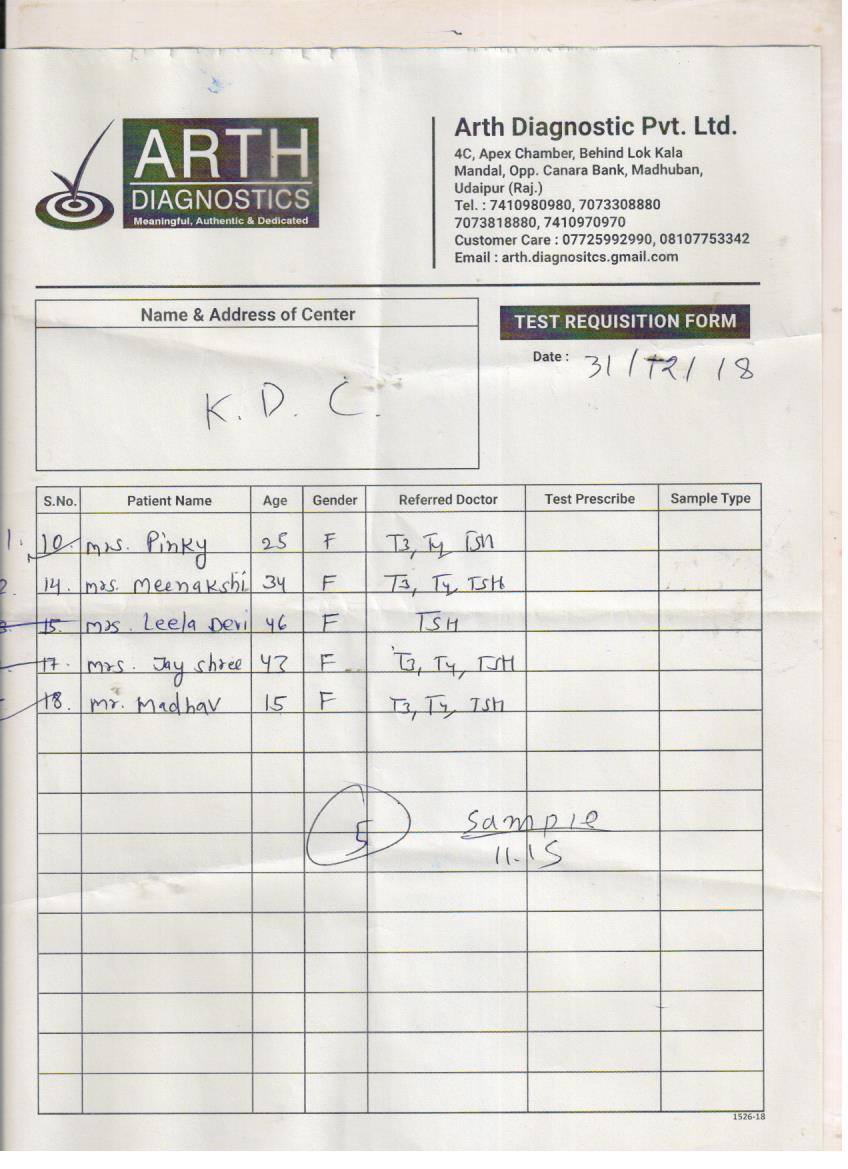 ARTH
DIAGNOSTICS
Meaningful, Authentic & Dedicated
Arth Diagnostic Pvt. Ltd.
4C, Apex Chamber, Behind Lok Kala
Mandal, Opp. Canara Bank, Madhuban,
Udaipur (Raj.)
Tel. : 7410980980, 7073308880
7073818880, 7410970970
Customer Care : 07725992990, 08107753342
Email : arth.diagnositcs.gmail.com
Name & Address of Center
TEST REQUISITION FORM
Date : 31/12/18
K. D. C.
S.No. Patient Name Age Gender Referred Doctor Test Prescribe Sample Type
1. 10. Mrs. Pinky 25 F T3, T4, TSH
2. 14. Mrs. Meenakshi 34 F T3, T4, TSH
3. 15. Mrs. Leela Devi 46 F TSH
17. Mrs. Jay Shree 43 F T3, T4, TSH
18. Mr. Madhav 15 F T3, T4, TSH
5 Sample
11.15
1526-18